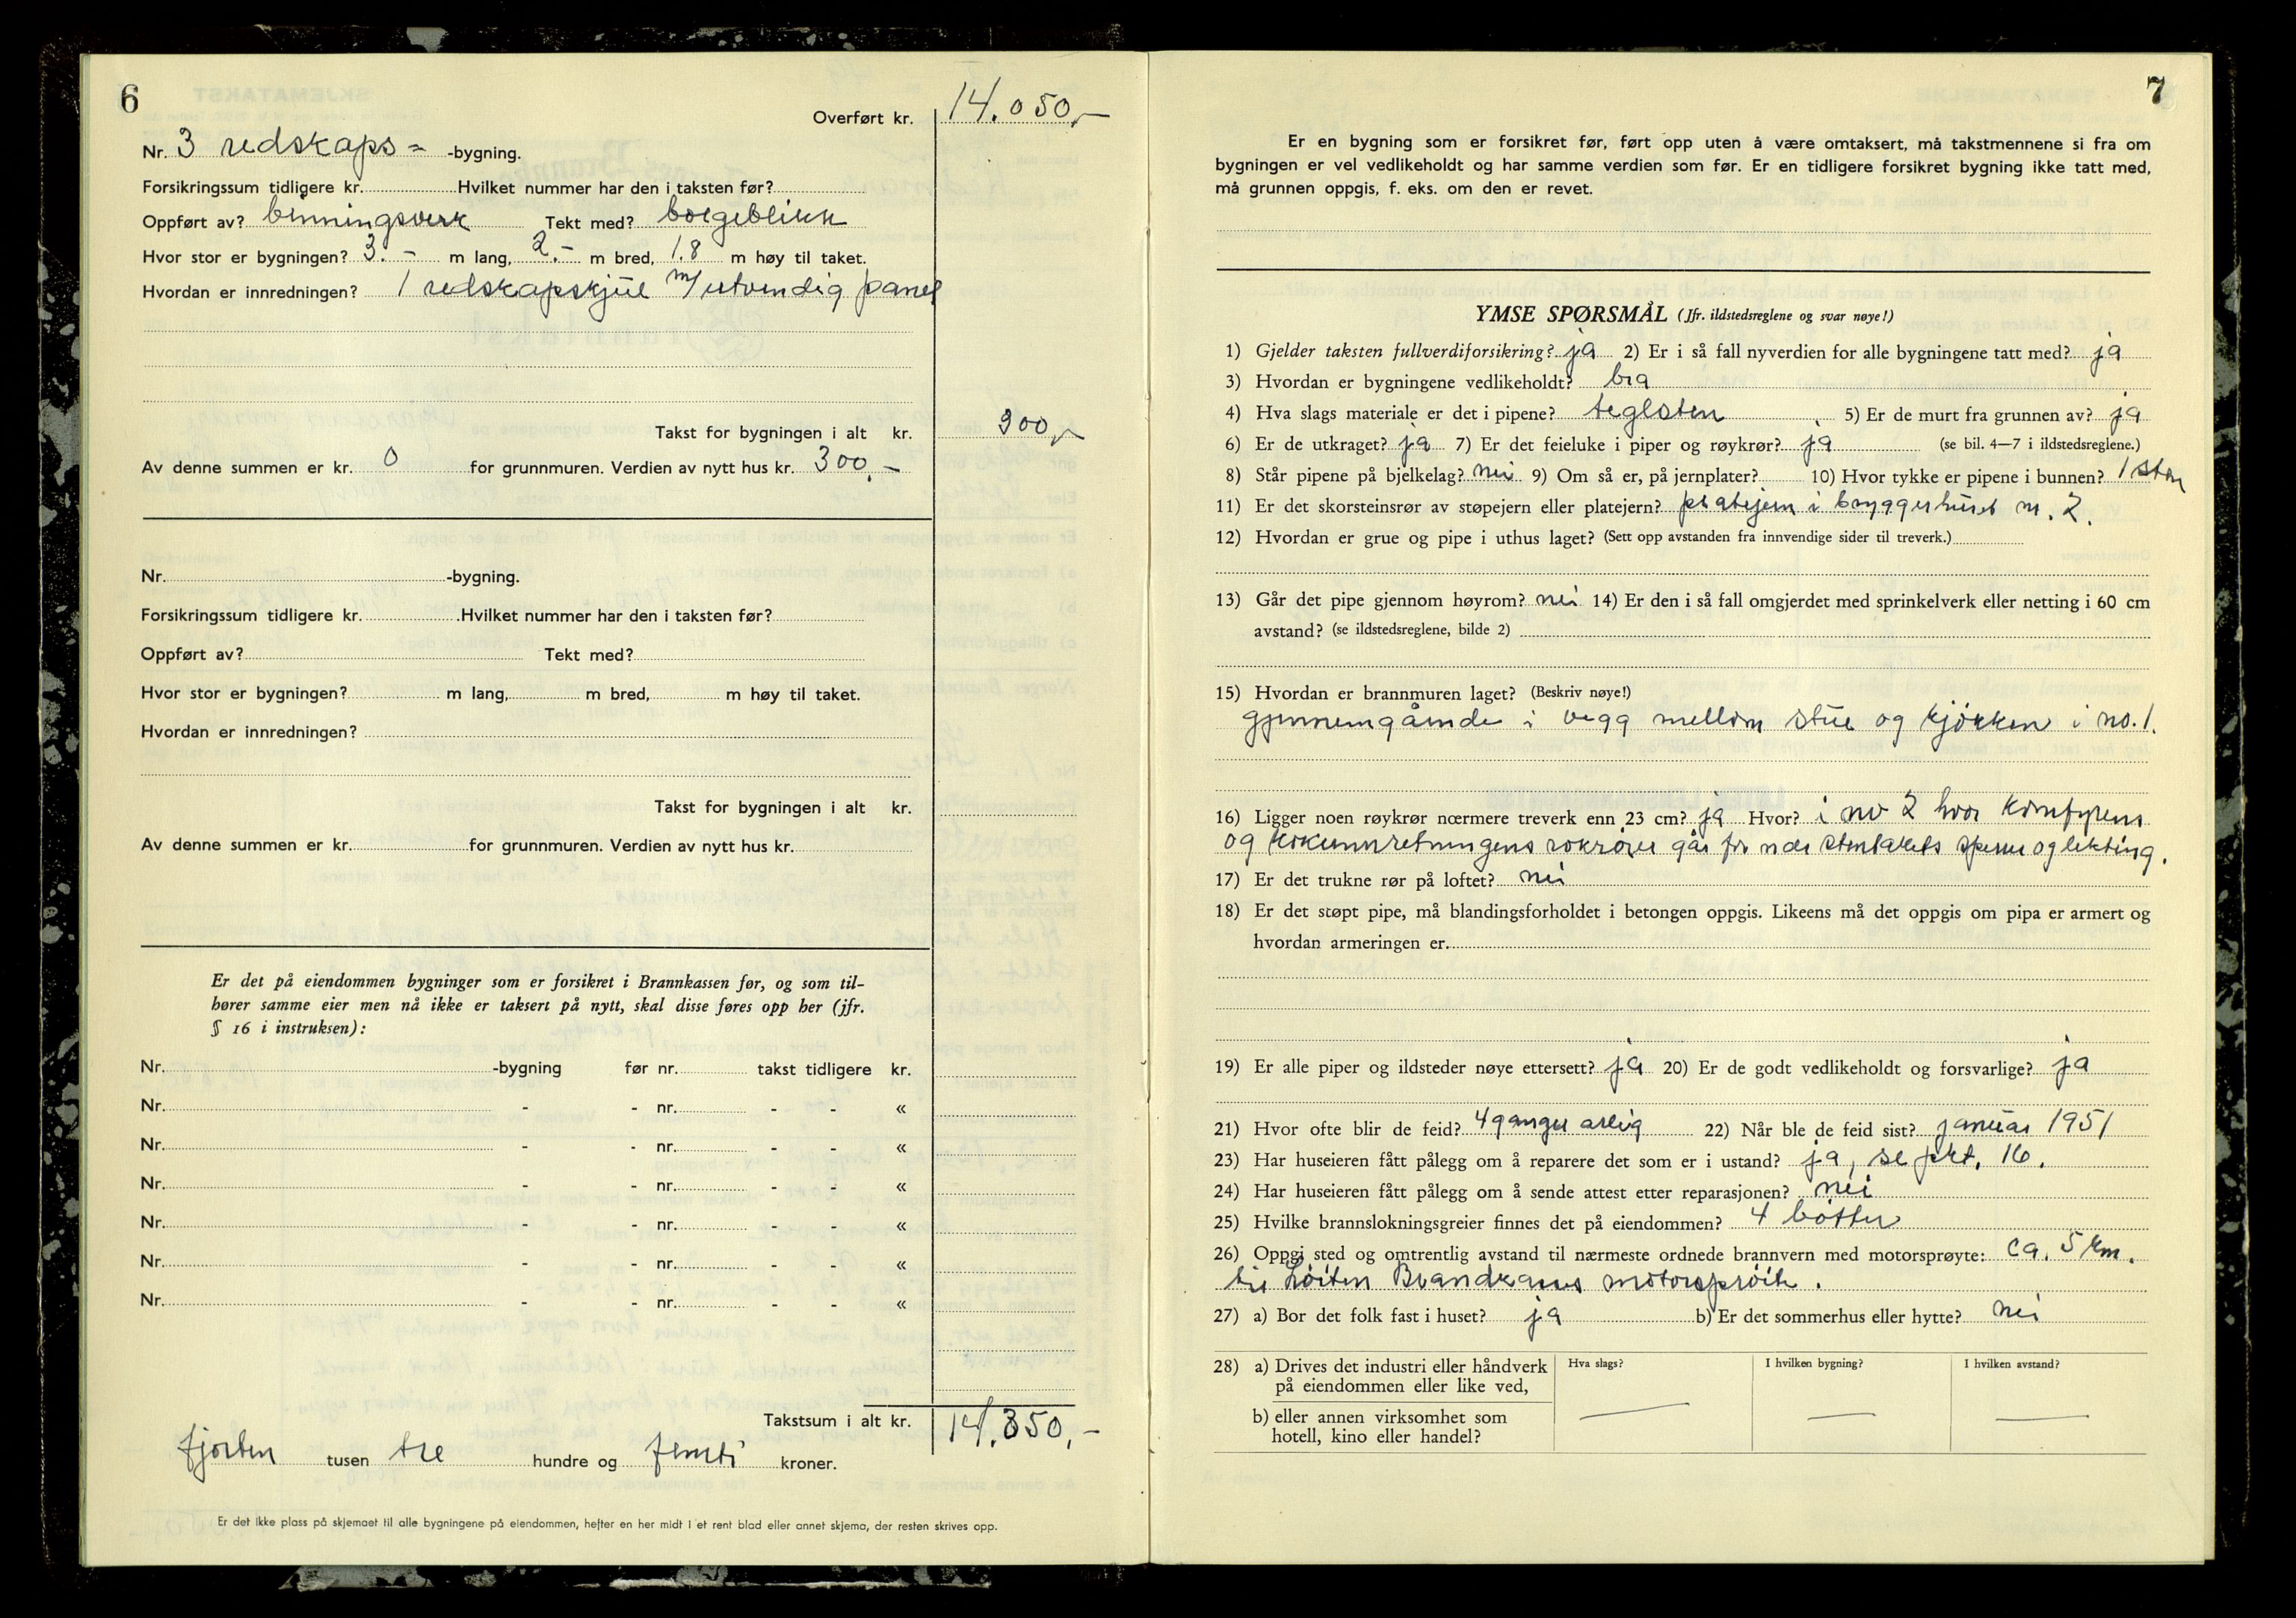 6
Overført kr. 14.050,-
Nr. 3 redskaps= -bygning.
Forsikringssum tidligere kr. Hvilket nummer har den i taksten før?
Oppført av? binningsverk Tekt med? bølgeblikk
Hvor stor er bygningen? 3.- m lang, 2.- m bred, 1.8 m høy til taket.
Hvordan er innredningen? 1 redskapskjul m/ utvendig panel
Takst for bygningen i alt kr. 300,-
Av denne summen er kr. 0 for grunnmuren. Verdien av nytt hus kr. 300,-
Nr. -bygning.
Forsikringssum tidligere kr. Hvilket nummer har den i taksten før?
Oppført av? Tekt med?
Hvor stor er bygningen? m lang, m bred, m høy til taket.
Hvordan er innredningen?
Takst for bygningen i alt kr.
Av denne summen er kr. for grunnmuren. Verdien av nytt hus kr.
Er det på eiendommen bygninger som er forsikret i Brannkassen før, og som til-
hører samme eier men nå ikke er taksert på nytt, skal disse føres opp her (jfr.
§ 16 i instruksen):
Nr. -bygning før nr. takst tidligere kr.
Nr. - - nr. - - «
Nr. - - nr. - - «
Nr. - - nr. - - «
Nr. - - nr. - - «
Nr. - - nr. - - «
Nr. - - nr. - - «
Takstsum i alt kr. 14.350,-
fjorten tusen tre hundre og femti kroner.
Er det ikke plass på skjemaet til alle bygningene på eiendommen, hefter en her midt i et rent blad eller annet skjema, der resten skrives opp.
7
Er en bygning som er forsikret før, ført opp uten å være omtaksert, må takstmennene si fra om
bygningen er vel vedlikeholdt og har samme verdien som før. Er en tidligere forsikret bygning ikke tatt med,
må grunnen oppgis, f. eks. om den er revet.
YMSE SPØRSMÅL (Jfr. ildstedsreglene og svar nøye!)
1) Gjelder taksten fullverdiforsikring? ja 2) Er i så fall nyverdien for alle bygningene tatt med? ja
3) Hvordan er bygningene vedlikeholdt? bra
4) Hva slags materiale er det i pipene? teglsten 5) Er de murt fra grunnen av? ja
6) Er de utkraget? ja 7) Er det feieluke i piper og røykrør? ja (se bil. 4—7 i ildstedsreglene.)
8) Står pipene på bjelkelag? nei 9) Om så er, på jernplater? 10) Hvor tykke er pipene i bunnen? 1 sten
11) Er det skorsteinsrør av støpejern eller platejern? platejern i bryggerhuset nr. 2.
12) Hvordan er grue og pipe i uthus laget? (Sett opp avstanden fra innvendige sider til treverk.)
13) Går det pipe gjennom høyrom? nei 14) Er den i så fall omgjerdet med sprinkelverk eller netting i 60 cm
avstand? (se ildstedsreglene, bilde 2)
15) Hvordan er brannmuren laget? (Beskriv nøye!)
gjennemgående i vegg mellom stue og kjøkken i no. 1.
16) Ligger noen røykrør nærmere treverk enn 23 cm? ja Hvor? i no 2 hvor komfyrens
og kokeinnretningens går for nær stentakets og lekting.
17) Er det trukne rør på loftet? nei
18) Er det støpt pipe, må blandingsforholdet i betongen oppgis. Likeens må det oppgis om pipa er armert og
hvordan armeringen er.
19) Er alle piper og ildsteder nøye ettersett? ja 20) Er de godt vedlikeholdt og forsvarlige? ja
21) Hvor ofte blir de feid? 4 ganger årlig 22) Når ble de feid sist? januar 1951
23) Har huseieren fått pålegg om å reparere det som er i ustand? ja, se pkt. 16.
24) Har huseieren fått pålegg om å sende attest etter reparasjonen? nei
25) Hvilke brannslokningsgreier finnes det på eiendommen? 4 bøtter
26) Oppgi sted og omtrentlig avstand til nærmeste ordnede brannvern med motorsprøyte: ca. 5 km.
til Løiten Brandkasses motorsprøite.
27) a) Bor det folk fast i huset? ja b) Er det sommerhus eller hytte? nei
28) a) Drives det industri eller håndverk på eiendommen eller like ved, Hva slags? I hvilken bygning? I hvilken avstand?
b) eller annen virksomhet som hotell, kino eller handel? — — —